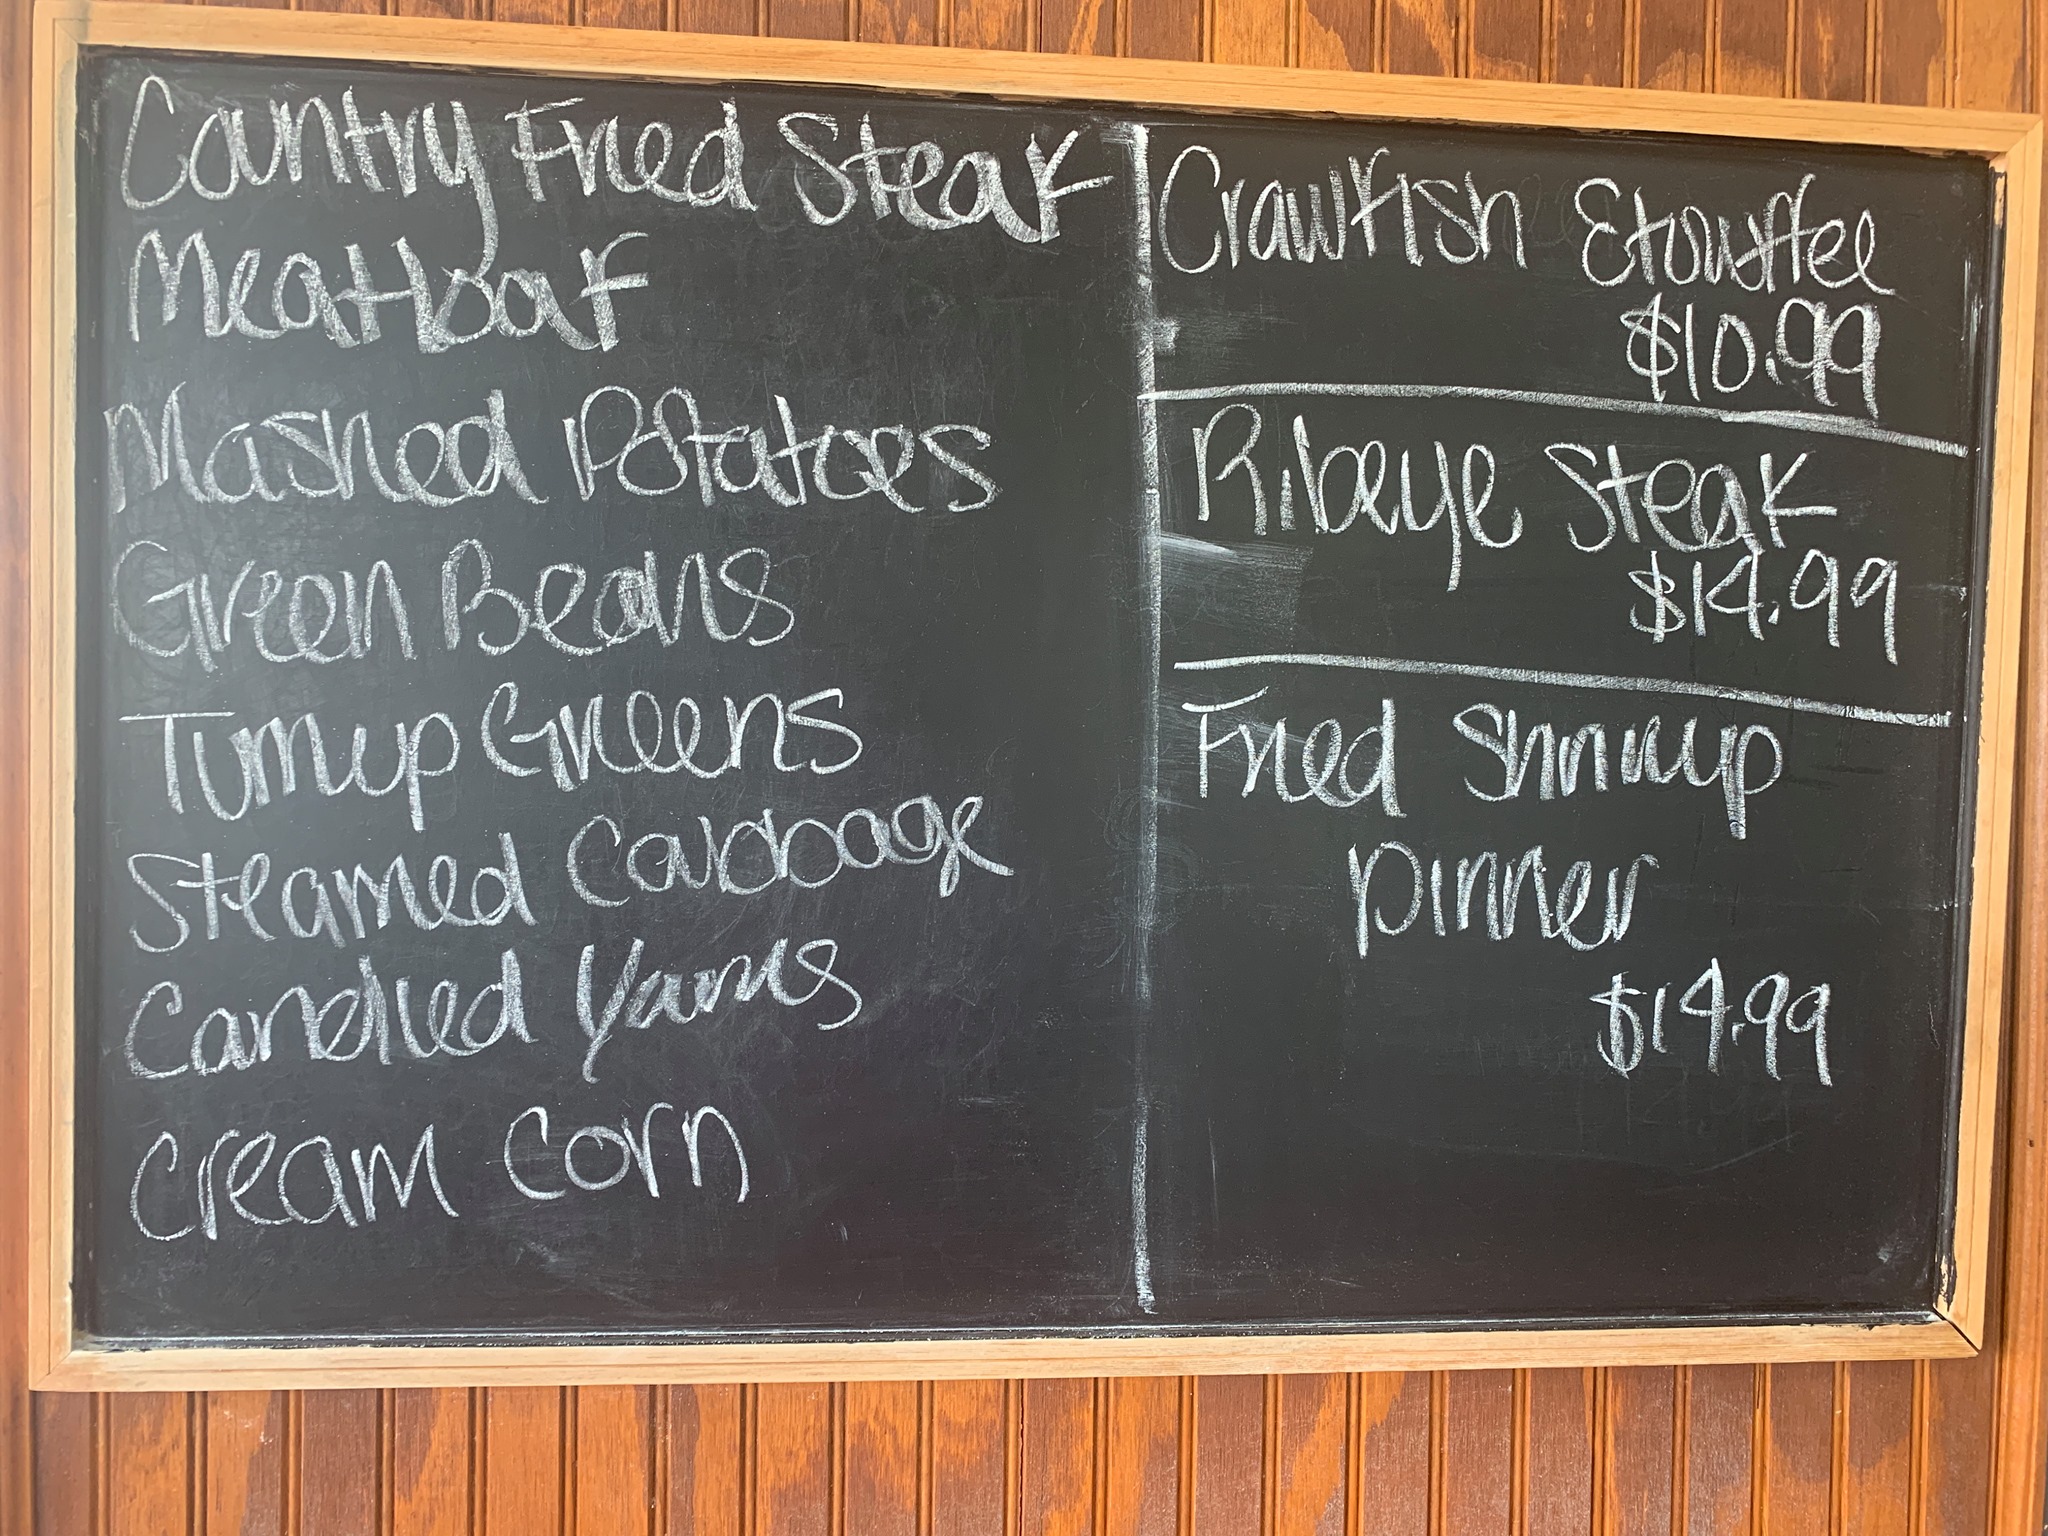 Country Fried Steak
Meatloaf
Mashed Potatoes
Green Beans
Turnup Greens
Steamed Cabbage
Candied Yams
Cream Corn
Crawfish Etouffee
$10.99
Ribeye Steak
$14.99
Fried Shrimp
Dinner
$14.99